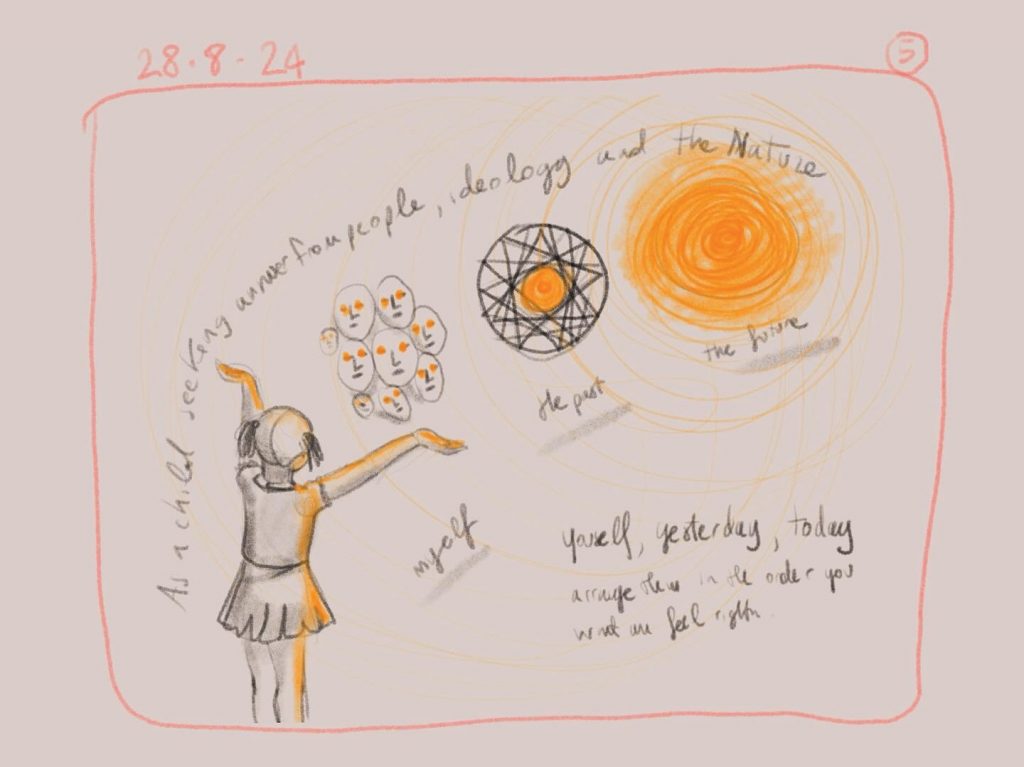 28.8.24
5
As a child seeking answer from people, ideology and the Nature
the future
the past
myself
youself, yesterday, today
arrange them in the order you
want feel right